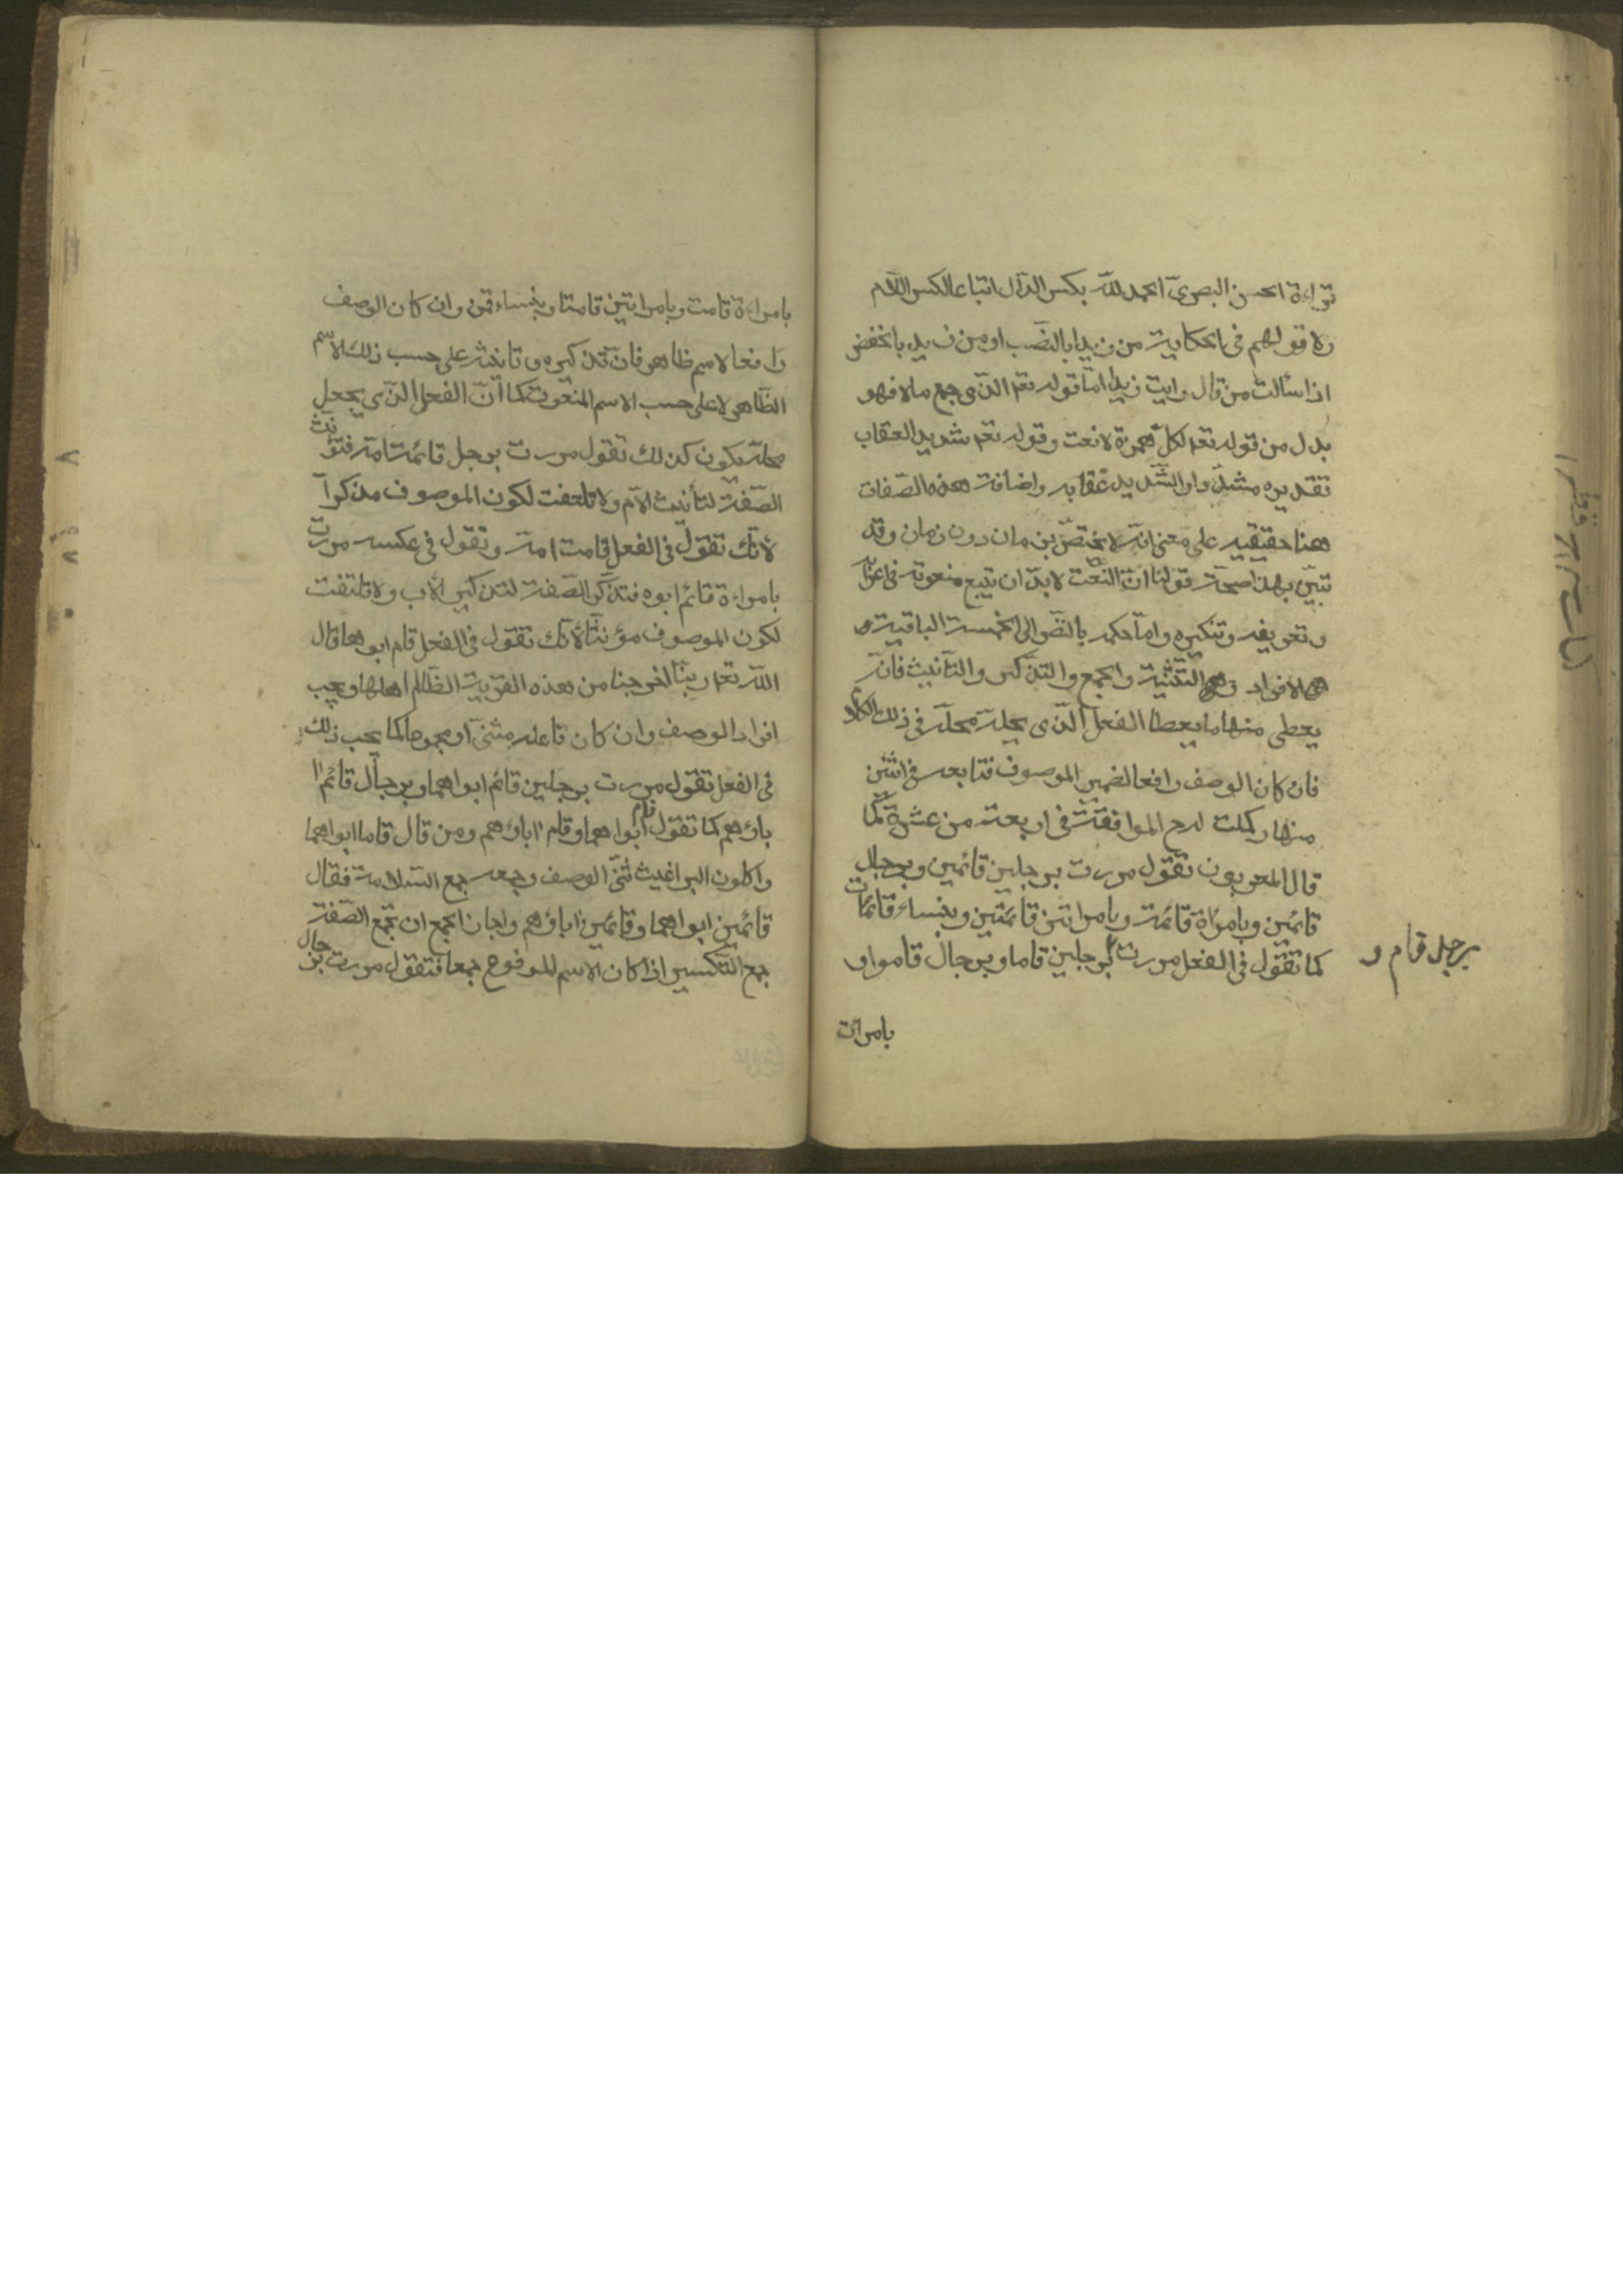 قراءة الحسن البصري الحمد لله بكسر الدال اتباعا لكسر اللام
ولا قولهم في الحكاية من زيدا بالنصب او من زيد بالخفض
اذا سألت من قال رايت زيدا امّا قوله تعم الذي جمع مالا فهو
بدل من قوله تعم لكل همزة لا نعت وقوله تعم شديد العقاب
تقديره مشدّد او الشّديد عقابه واضافة هذه الصّفات
هنا حقيقيه على معنى انه لا يختصّ بزمان دون زمان وقد
تبيّن بهذا صحة قولنا انّ النّعت لا بدّ ان يتبع منعوته في اعرابه
وتعريفه وتنكيره وامّا حكمه بالنّظر الى الخمسة الباقية و
هي الافراد والتثنية والجمع والتذكير والتأنيث فانّه
يعطى منها ما يعطا الفعل الذي يحلّ محلّه في ذلك الكلام
فان كان الوصف رافعا لضمير الموصوف فتابعه في اثنين
منها وكملت له ح الموافقة في اربعة من عشرة كما
قال المعربون تقول مررت برجلين قائمين وبرجال
قائمين وبامرأة قائمة وبامراتين قائمتين وبنساء قائمات
كما تقول في الفعل مررت برجلين قاما وبرجال قاموا و
برجل قام و
بامرات
بامراءة قامت وبامراتين قامتا وبنساء قمن وان كان الوصف
رافعا لاسم ظاهر فان تذكيره وتانيثه على حسب ذلك الاسم
الظّاهر لا على حسب الاسم المنعوت كما انّ الفعل الذي يحل
محله يكون كذلك تقول مررت برجل قائمة امه فتؤنث
الصّفة لتأنيث الأم ولا تلتفت لكون الموصوف مذكرا
لأنك تقول في الفعل قامت امه وتقول في عكسه مررت
بامراءة قائم ابوه فتذكّر الصّفة لتذكير الأب ولا تلتفت
لكون الموصوف مؤنثا لأنك تقول في الفعل قام ابوها قال
الله تعم ربنا اخرجنا من هذه القرية الظالم اهلها ويجب
افراد الوصف وان كان فاعله مثنى او مجموعا كما يجب ذلك
في الفعل تقول مررت برجلين قائم ابواهما وبرجال قائم ا
باؤهم كما تقول قام ابواهما وقام اباؤهم ومن قال قاما ابواهما
واكلون البراغيث ثنّى الوصف وجمعه جمع السّلامة فقال
قائمين ابواهما وقائمين اباؤهم واجاز الجمع ان تجمع الصّفة
جمع التكسير اذا كان الاسم المرفوع جمعا فتقول مررت برجال